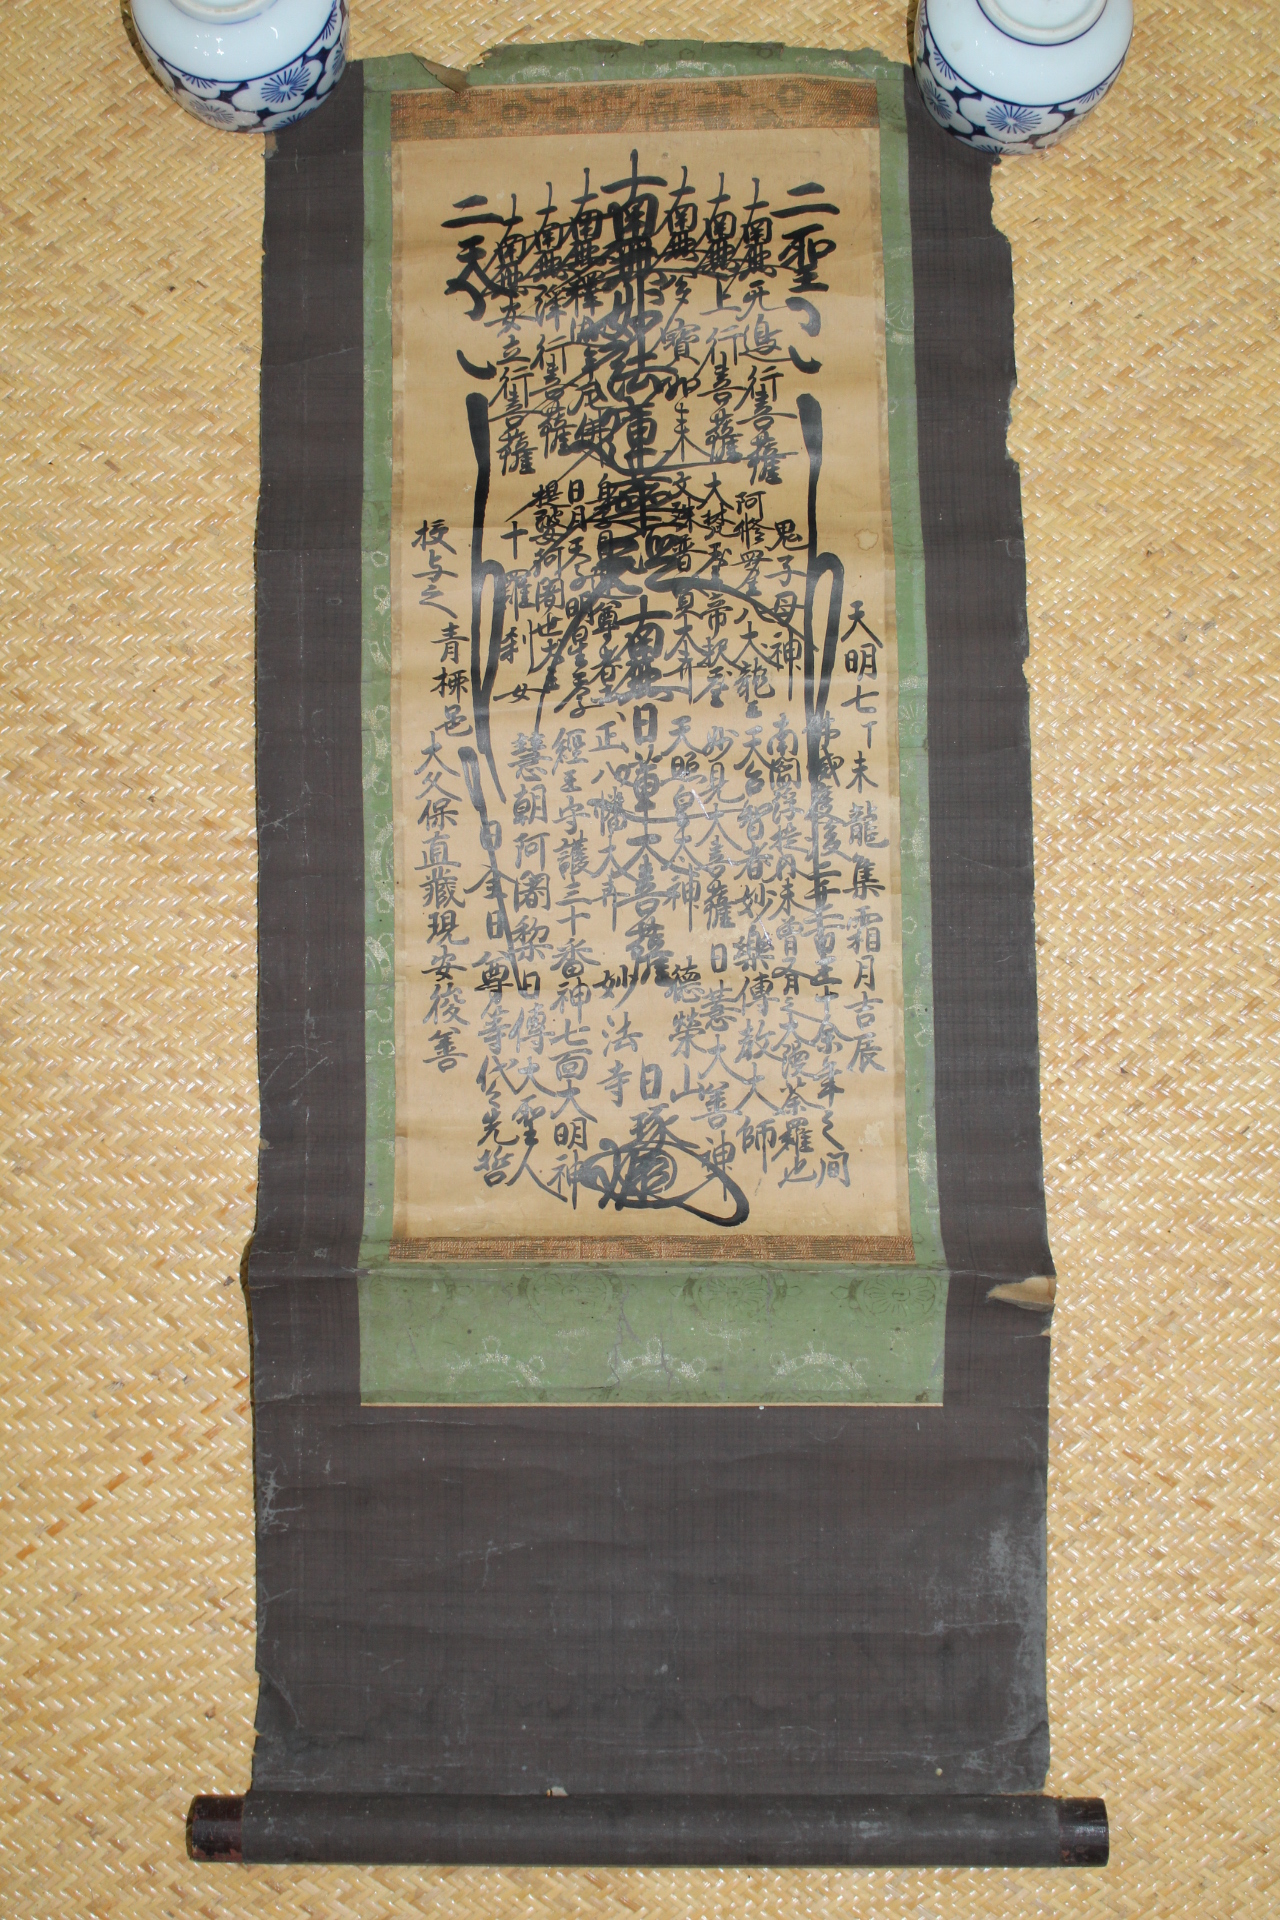 天明七丁未龍集霜月吉辰
佛滅度後二千二百三十余年之間
二聖
鬼子母神
南閻浮提内未曾有之大漫荼羅也
南無无邊行菩薩
阿修羅王 八大龍王
天台智者妙樂傳教大師
南無上行菩薩
大梵天王 帝釈天王
妙見大菩薩 日蓮大善神
南無多寶如来
文殊普賢大士
天照皇太神
德榮山
南無妙法蓮華經
南無日蓮大菩薩
日琢
妙法寺
南無釋迦牟尼佛
身子目連尊者
正八幡大菩薩
日月天子明星天子
經王守護三十番神七面大明神
南無淨行菩薩
提婆阿闍世大王
慧朝阿闍黎日傳大聖人
南無安立行菩薩
十羅刹女
日全日尊等代々先哲
二天
授与之 青梅邑 大久保直藏現安後善